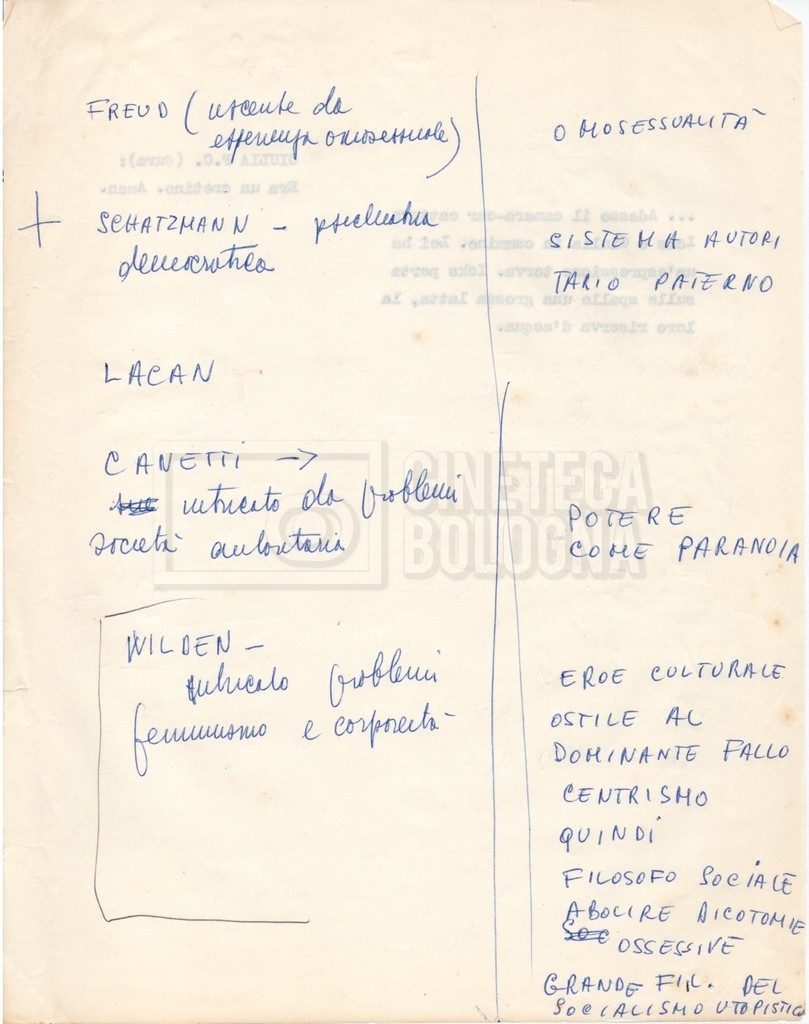 FREUD (uscente da
esperienza omosessuale)
+ SCHATZMANN – psichiatria
democratica
LACAN
CANETTI →
intricato da problemi
società autoritaria
WILDEN –
intricato problemi
femminismo e corporeità
OMOSESSUALITÀ
SISTEMA AUTORI
TARIO PATERNO
POTERE
COME PARANOIA
EROE CULTURALE
OSTILE AL
DOMINANTE FALLO
CENTRISMO
QUINDI
FILOSOFO SOCIALE
ABOLIRE DICOTOMIE
OSSESSIVE
GRANDE FIL. DEL
SOCIALISMO UTOPISTICO
CINETECA
BOLOGNA
GIULIA F.C. (dura):
Era un cretino. Amen.
... Adesso il camera-car
Lei ha
un'espressione torva. porta
sulle spalle una grossa latta, la
loro riserva d'acqua.